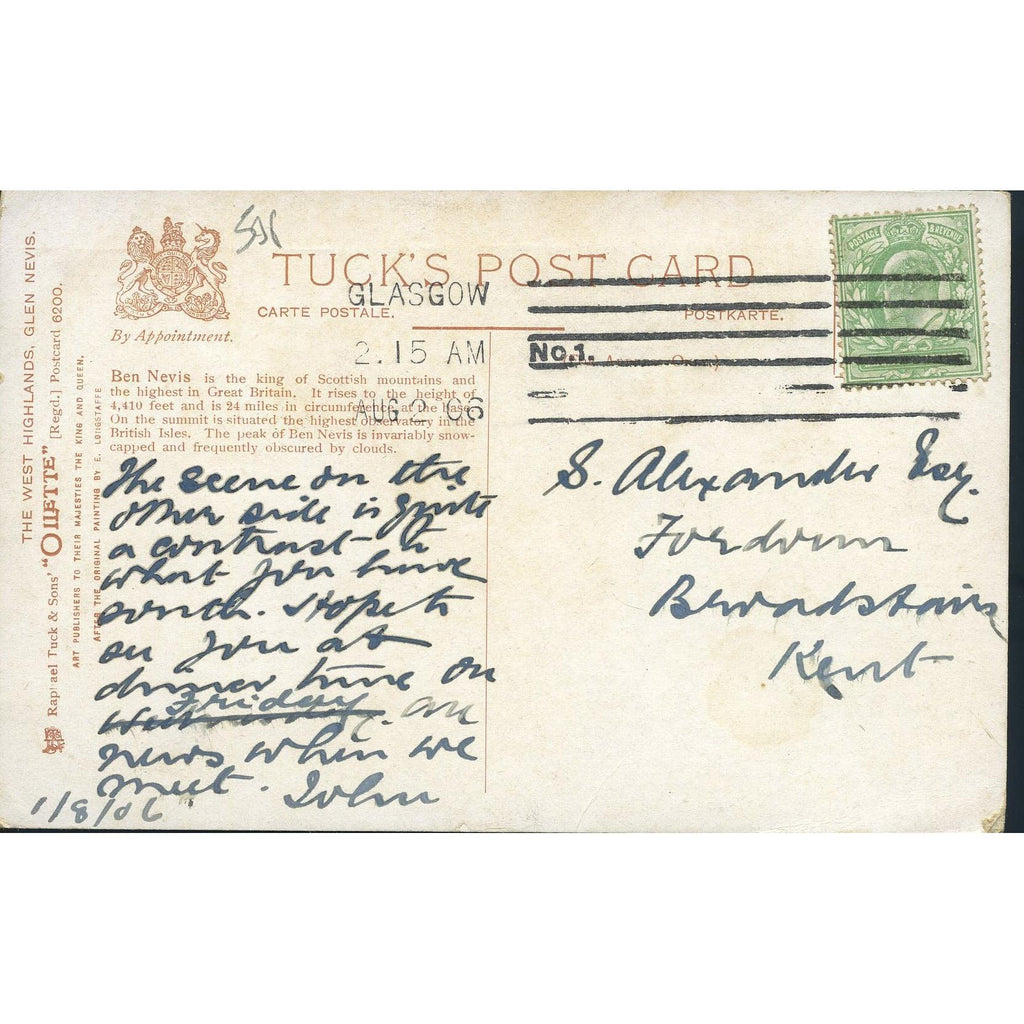 THE WEST HIGHLANDS, GLEN NEVIS.
Raphael Tuck & Sons' "OILETTE" [Regd.] Postcard 6200.
ART PUBLISHERS TO THEIR MAJESTIES THE KING AND QUEEN.
AFTER THE ORIGINAL PAINTING BY E. LONGSTAFFE
By Appointment.
TUCK'S POST CARD
CARTE POSTALE.
POSTKARTE.
GLASGOW
2.15 AM
AUG 2 06
No.1.
POSTAGE & REVENUE
Ben Nevis is the king of Scottish mountains and
the highest in Great Britain. It rises to the height of
4,410 feet and is 24 miles in circumference at the base.
On the summit is situated the highest observatory in the
British Isles. The peak of Ben Nevis is invariably snow-
capped and frequently obscured by clouds.
The scene on the
other side is quite
a contrast to
what you have
south. Hope to
see you at
dinner time on
Friday.
news when we
meet. John
1/8/06
S. Alexander Esq.
Broadstairs
Kent